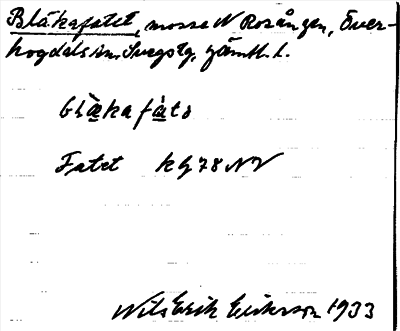 Blåkafatet, mosse N Rosången, Över-
hogdals sn. Svegs tg, Jämtl. l.
Fatet kg 78 NV
Nils Erik Eriksson 1933